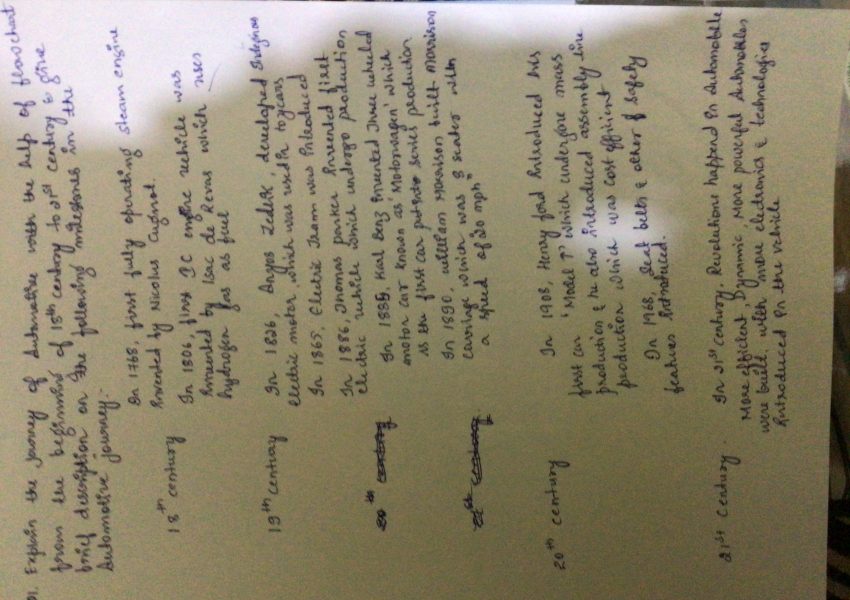 01. Explain the journey of Automotive with the help of flowchart
from the beginning of 18th century to 21st century & give
brief description on the following milestones in the
Automotive journey:-
18th century
In 1768, first fully operating steam engine
invented by Nicolus Cugnot.
In 1806, first IC engine vehicle was
invented by Isac de Revas which uses
hydrogen gas as fuel
19th century
In 1826, Anyos Jedlik, developed
electric motor, which was used in toycars
In 1865, Electric Tram was introduced
In 1886, Thomas parker invented first
electric vehicle which undergo production
20th century
In 1885, Karl Benz invented Three wheeled
motor car known as 'Motorwagen' which
is the first car put into series production
In 1890, william Morrison built Morrison
carriage which was 8 seater with
a speed of 20 mph"
21st century
20th century
In 1908, Henry ford introduced his
first car 'Model T' which undergone mass
production & he also introduced assembly line
production which was cost efficient
In 1968, Seat belts & other of safety
features introduced.
21st Century.
In 21st century, Revolutions happend in automobile
More efficient, Dynamic, More powerful automobiles
were built, with more electronics & technologies
introduced in the vehicle